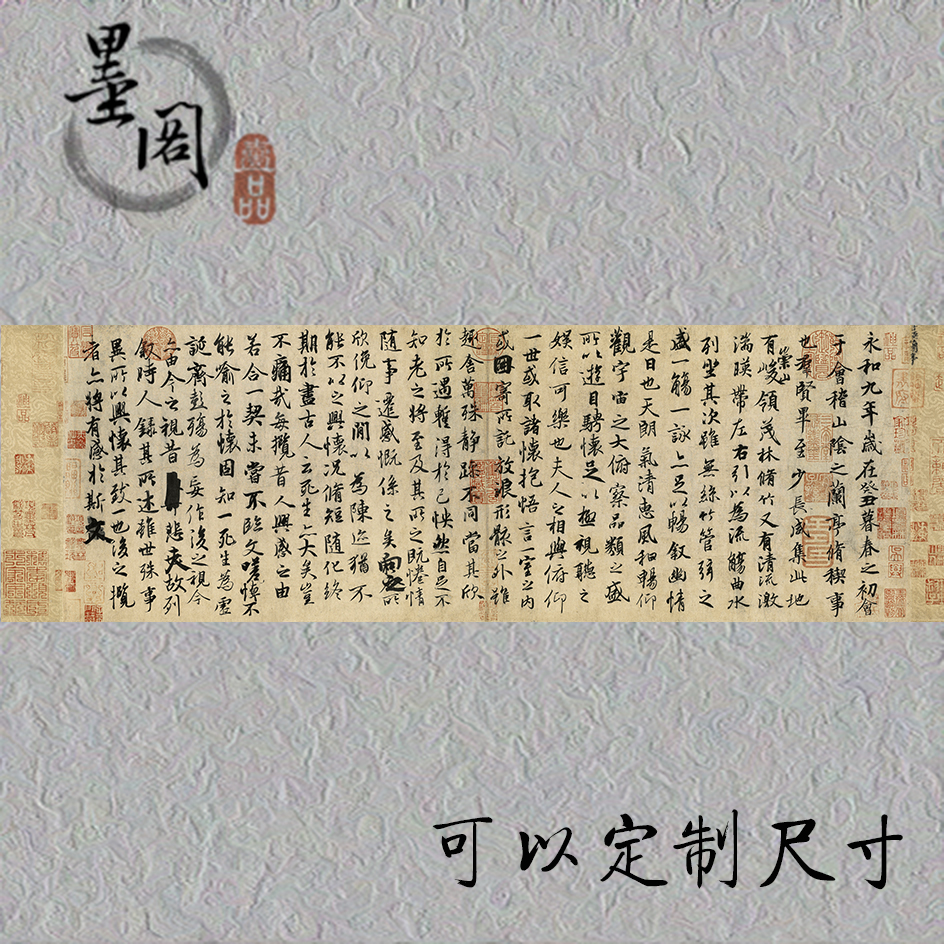 墨阁
壹品
永和九年歲在癸丑暮春之初會
于會稽山陰之蘭亭脩稧事
也羣賢畢至少長咸集此地
崇山
有峻領茂林脩竹又有清流激
湍暎帶左右引以為流觴曲水
列坐其次雖無絲竹管弦之
盛一觴一詠亦足以暢敘幽情
是日也天朗氣清惠風和暢仰
觀宇宙之大俯察品類之盛
所以遊目騁懷足以極視聽之
娛信可樂也夫人之相與俯仰
一世或取諸懷抱悟言一室之內
或因寄所託放浪形骸之外雖
趣舍萬殊靜躁不同當其欣
於所遇蹔得於己怏然自足不
知老之將至及其所之既惓情
隨事遷感慨係之矣向之所
欣俛仰之閒以為陳迹猶不
能不以之興懷況脩短隨化終
期於盡古人云死生亦大矣豈
不痛哉每攬昔人興感之由
若合一契未嘗不臨文嗟悼不
能喻之於懷固知一死生為虛
誕齊彭殤為妄作後之視今
亦由今之視昔悲夫故列
敘時人錄其所述雖世殊事
異所以興懷其致一也後之攬
者亦將有感於斯文
可以定制尺寸